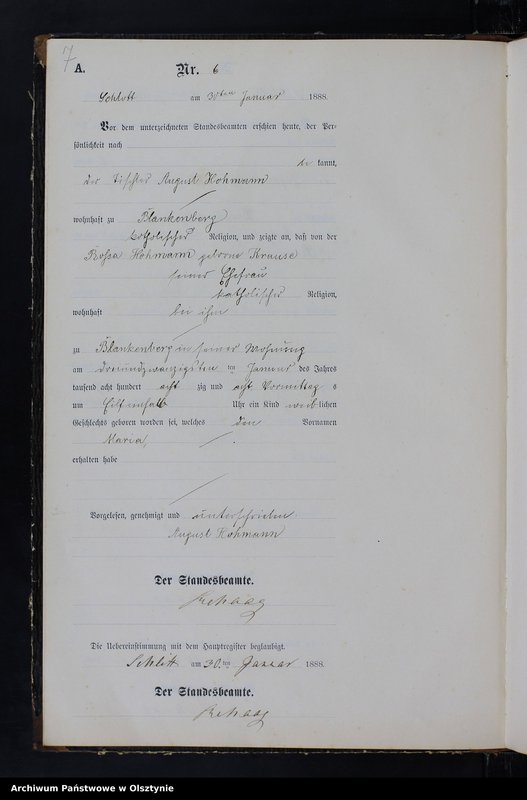 7
A.
Nr. 6
Schlitt am 30ten Januar 1888.
Vor dem unterzeichneten Standesbeamten erschien heute, der Per-
sönlichkeit nach
be kannt,
der Tischler August Hohmann
wohnhaft zu Blankenberg
katholischer Religion, und zeigte an, daß von der
Rosa Hohmann geborne Krause
seiner Ehefrau
katholischer Religion,
wohnhaft bei ihm
zu Blankenberg in seiner Wohnung
am dreiundzwanzigsten ten Januar des Jahres
tausend acht hundert acht zig und acht Vormittag s
um Uhr ein Kind weib lichen
Geschlechts geboren worden sei, welches den Vornamen
Maria,
erhalten habe
Vorgelesen, genehmigt und unterschrieben
August Hohmann
Der Standesbeamte.
Rehaag
Die Uebereinstimmung mit dem Hauptregister beglaubigt.
Schlitt am 30. ten Januar 1888.
Der Standesbeamte.
Rehaag
Archiwum Państwowe w Olsztynie